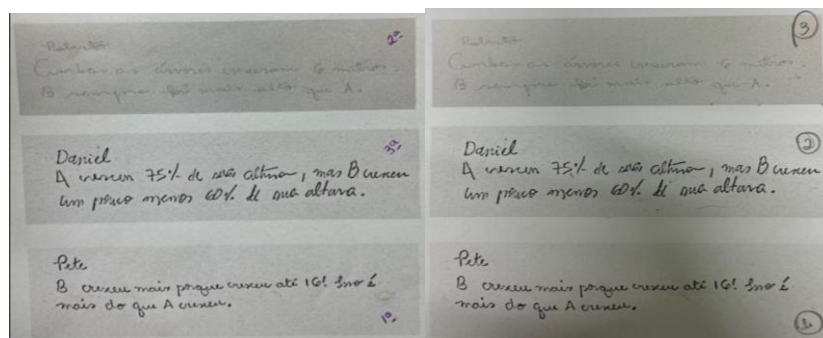 2ª
Roberto
Ambas as árvores cresceram 6 metros.
B sempre foi mais alto que A.
3ª
Daniel
A cresceu 75% de sua altura, mas B cresceu
um pouco menos 60% de sua altura.
Pete
B cresceu mais porque cresceu até 16! Isso é
mais do que A cresceu.
1ª
3
Roberto
Ambas as árvores cresceram 6 metros.
B sempre foi mais alto que A.
2
Daniel
A cresceu 75% de sua altura, mas B cresceu
um pouco menos 60% de sua altura.
Pete
B cresceu mais porque cresceu até 16! Isso é
mais do que A cresceu.